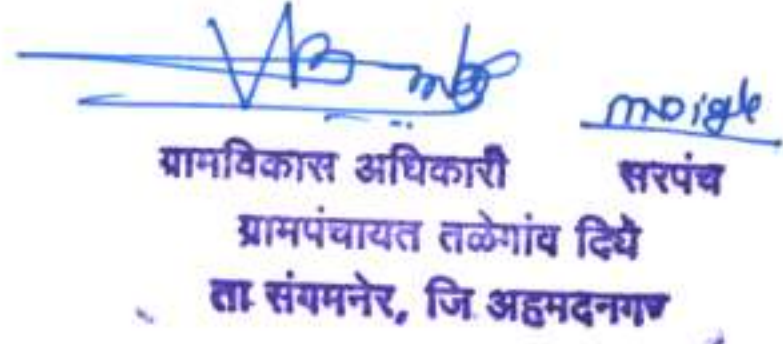 moigle
ग्रामविकास अधिकारी सरपंच
ग्रामपंचायत तळेगांव दिघे
ता. संगमनेर, जि अहमदनगर